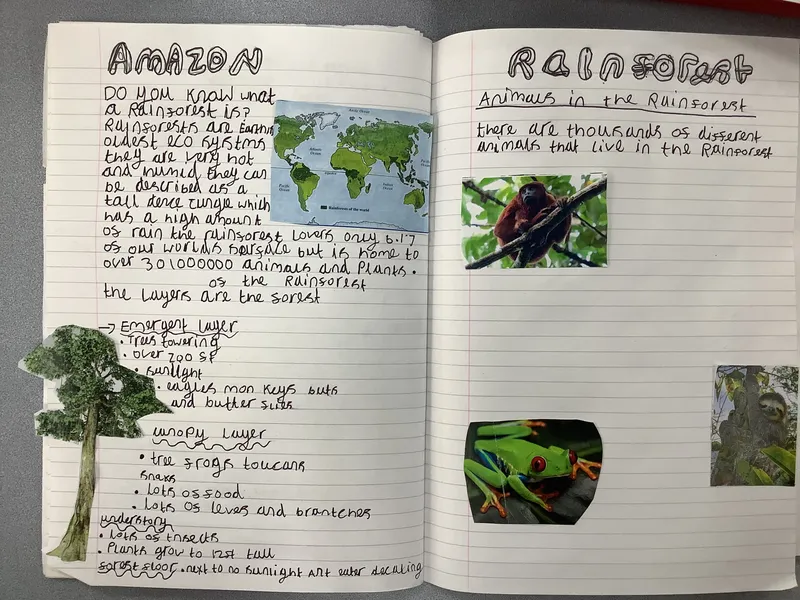 AMAZON
DO YOU KNOW what
a Rainforest is?
Rainforests are Earths
oldest eco systms
they are very hot
and humid they can
be described as a
tall dence jungle which
has a high amount
of rain the rainforest covers only 6.1%
of our worlds surface but is home to
over 301000000 animals and Plants.
of the Rainforest
the Layers are the forest
→ Emergent Layer
• Trees towering
• over 200 sf
• sunlight
• eagles monkeys bats
and butterflies
canopy Layer
• tree frogs toucans
snaks
• Lots of food
• Lots of leves and brantches
understory
• Lots of Insects
• Plants grow to 12ft tall
forest floor • next to no sunlight Ant eater decaling
Arctic Ocean
Atlantic Ocean
Pacific Ocean
Indian Ocean
Rainforests of the world
RaInfORest
Animals in the Rainforest
there are thousands of different
animals that live in the Rainforest